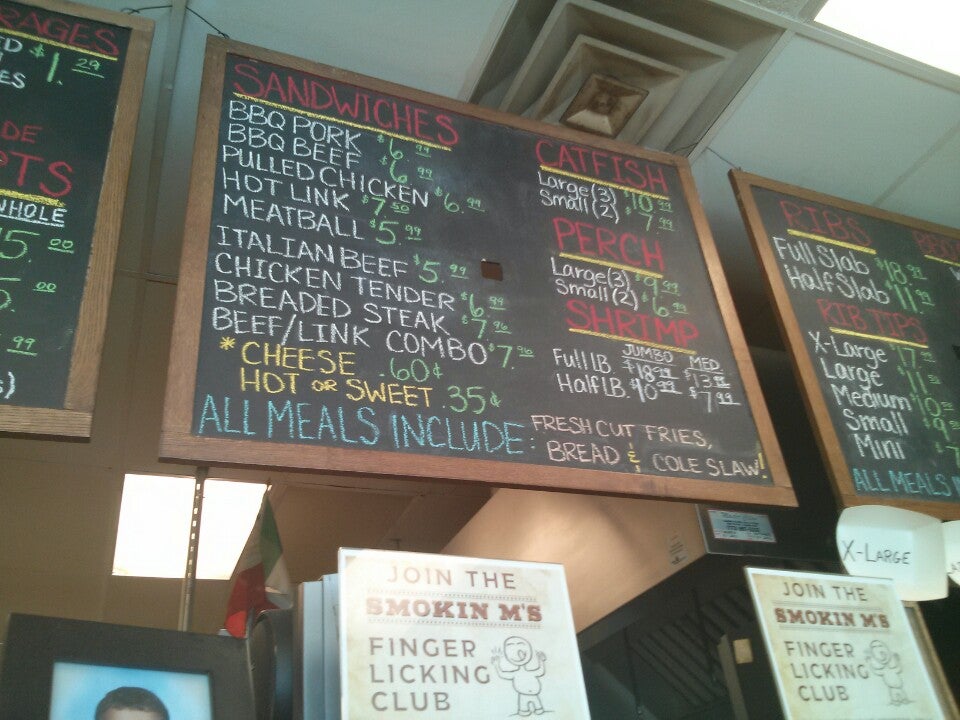 RAGES
$1.29
ES
DE
TS
WHOLE
5.00
.00
.99
SANDWICHES
BBQ PORK $6.99
BBQ BEEF $6.99
PULLED CHICKEN $6.99
HOT LINK $7.50
MEATBALL $5.99
ITALIAN BEEF $5.99
CHICKEN TENDER $6.99
BREADED STEAK $7.96
BEEF/LINK COMBO $7.96
* CHEESE .60¢
HOT OR SWEET .35¢
ALL MEALS INCLUDE: FRESH CUT FRIES,
BREAD & COLE SLAW!
CATFISH
Large(3) $10.99
Small(2) $7.99
PERCH
Large(3) $9.99
Small(2) $6.99
SHRIMP
JUMBO MED
Full LB. $18.99 $13.99
Half LB. $10.99 $7.99
RIBS
Full Slab $18.99
Half Slab $11.99
RIB TIPS
X-Large
Large
Medium
Small
Mini
ALL MEALS
X-LARGE
JOIN THE
SMOKIN M'S
FINGER
LICKING
CLUB
JOIN THE
SMOKIN M'S
FINGER
LICKING
CLUB